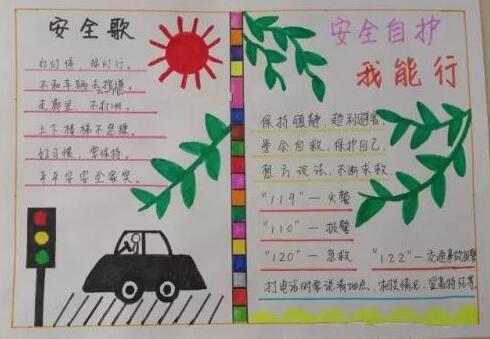 安全歌
红灯停，绿灯行。
不和车辆去拥挤
走廊里，不打闹。
上下楼梯不急躁。
好习惯，要保持。
平平安安全家笑。
安全自护
我能行
保持镇静，趋利避害，
学会自救，保护自己，
想方设法，不断求救
"119"—火警
"110"—报警
"120"—急救 "122"—交通事故报警
打电话时要说清地点、相关情况、显著特征等。